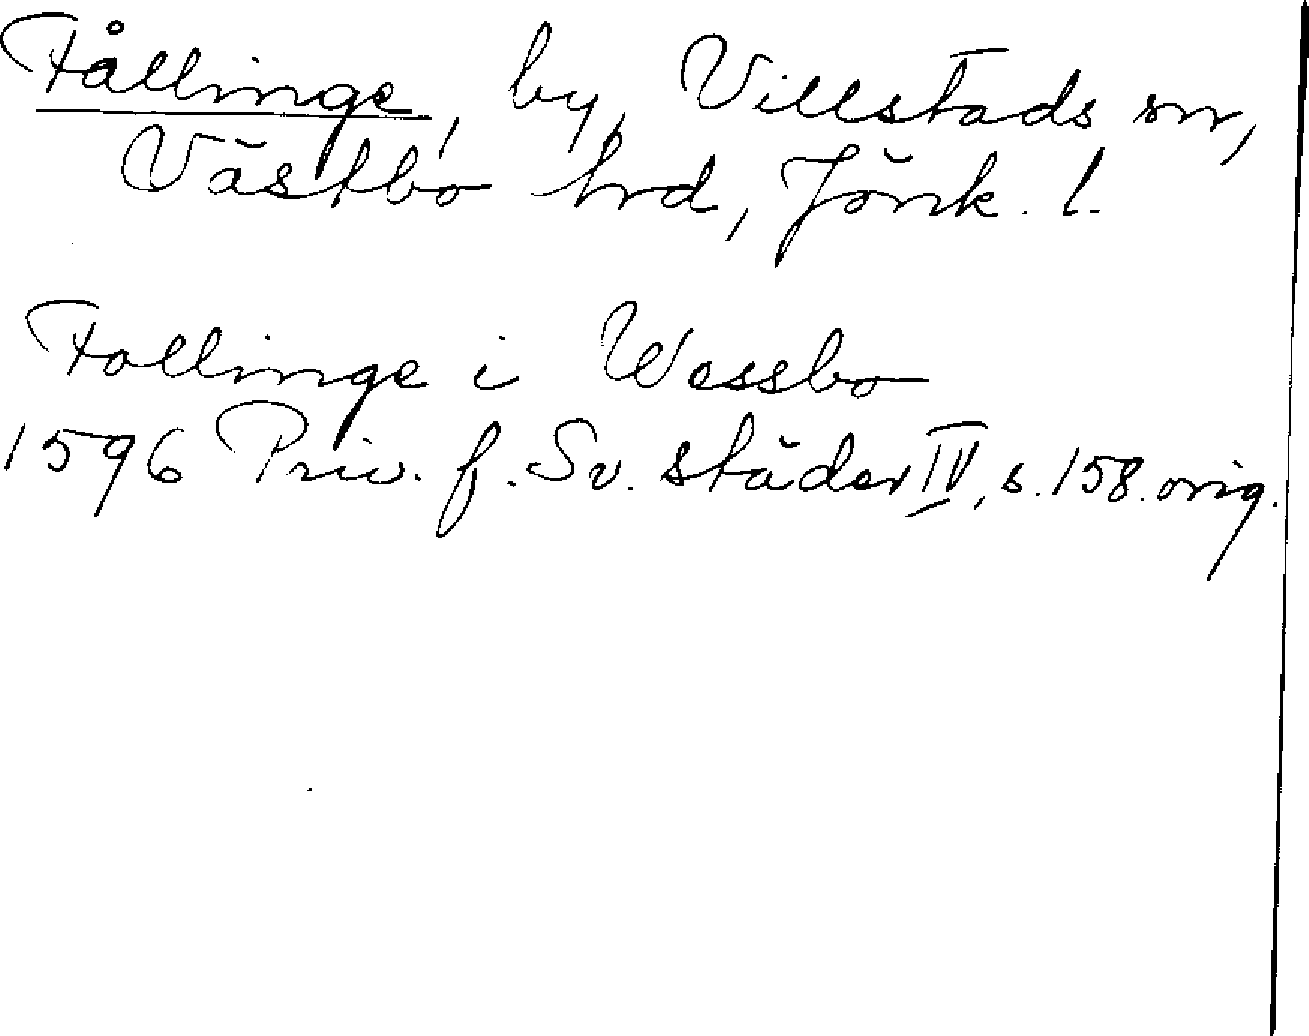 Fållinge, by, Villstads sn,
Västbo hrd, Jönk. l.
Follinge i Wessbo
1596 Priv. f. Sv. städer IV, s. 158. orig.